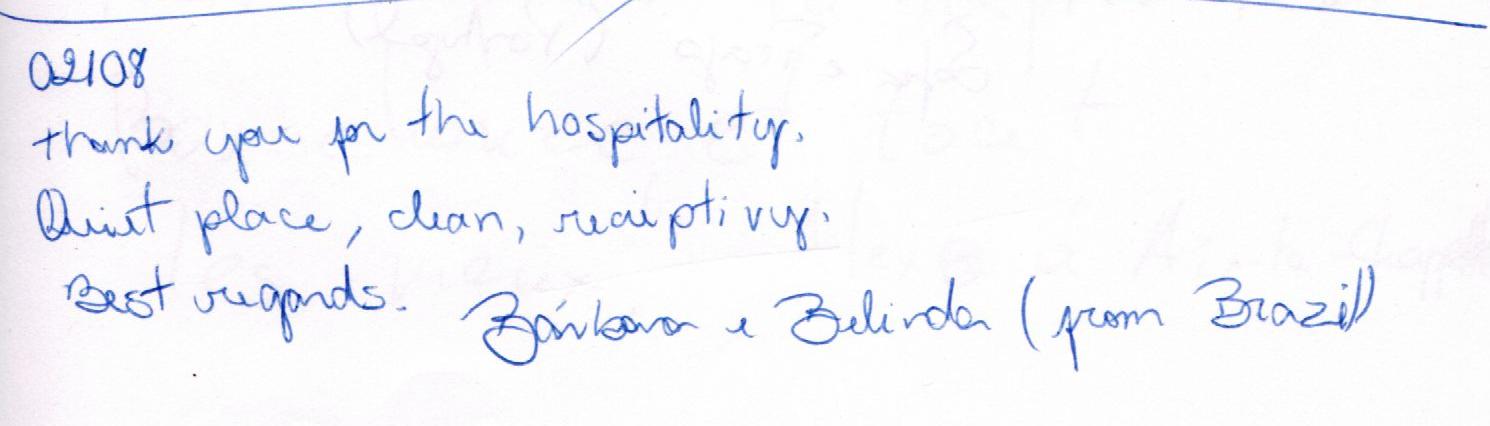 02/08
thank you for the hospitality.
Quiet place, clean, reciptivy.
Best regards. Bárbara e Belinda (from Brazil)